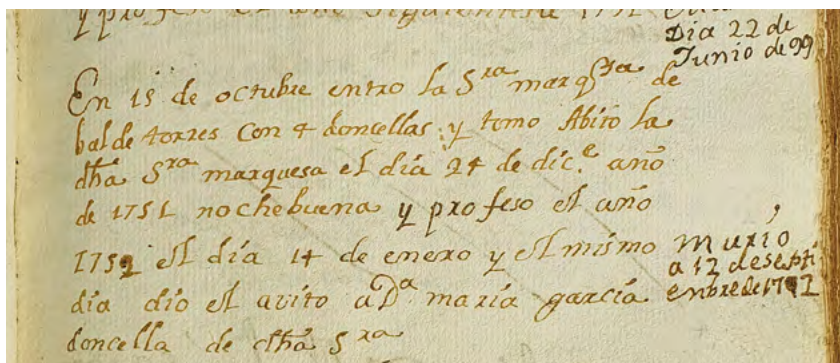 y profeso el año siguiente
Dia 22 de
Junio de 99
En 15 de octubre entro la Sra marqsa de
balde torres con 4 doncellas y tomo Abito la
dha Sra marquesa el dia 24 de dic.e año
de 1751 nochebuena y profeso el año
1752 el dia 14 de enero y el mismo
dia dio el avito a Da maria garcia
doncella de dha Sra
murio
a 12 de septi
enbre de 1792